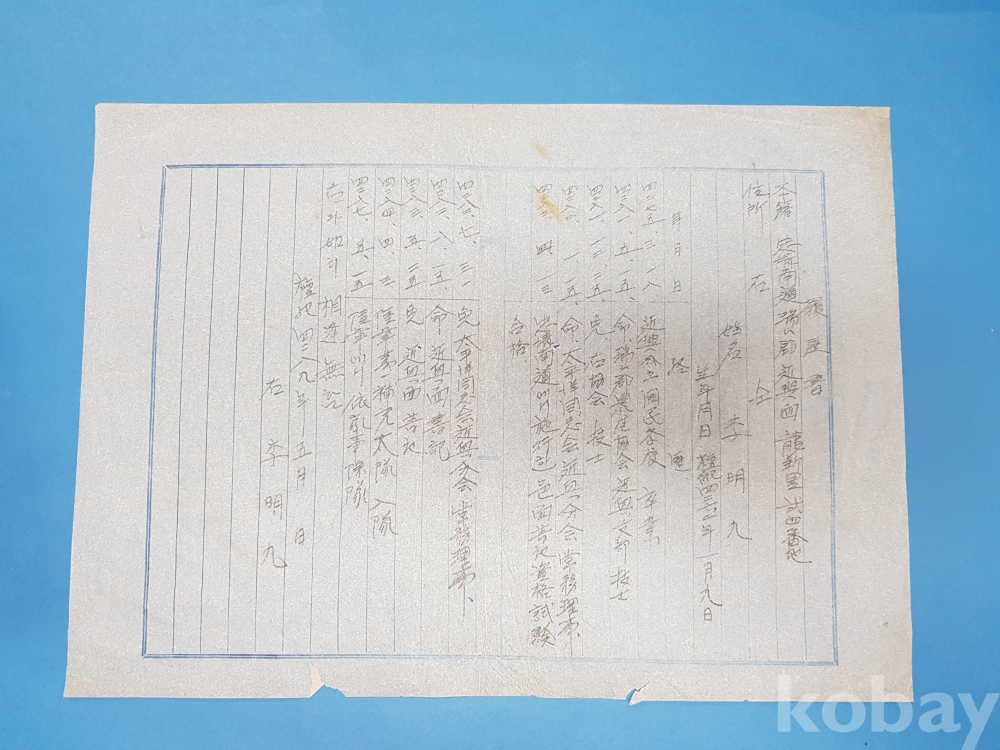 履歷書
本籍 忠淸南道瑞山郡近興面龍新里 貳四番地
住所 右 仝
姓名 李明九
生年月日 檀紀四二六二年一月九日
年月日 經歷
四二七五、三、一八、近興公立國民學校 卒業
四二八一、五、一五、命、瑞山郡農庄協会近興支部 技士
四二八一、一二、二五、免、右協会 技士
四二八二、一、一五、命、太平洋同志会近興分会常務理事、
忠淸南道에서施行한邑面書記資格試驗
合格
四二八二、七、三一 免、太平洋同志会近興分会常務理事、
四二八二、八、一五、命、近興面書記
四二八三、五、二五 免 近興面書記
四二八四、四、三 陸軍第一補充大隊 入隊
四二八七、五、一五 陸軍에서 依歸事除隊
右와如히 相違無함
檀紀四二八九年 五月 日
右 李明九
kobay